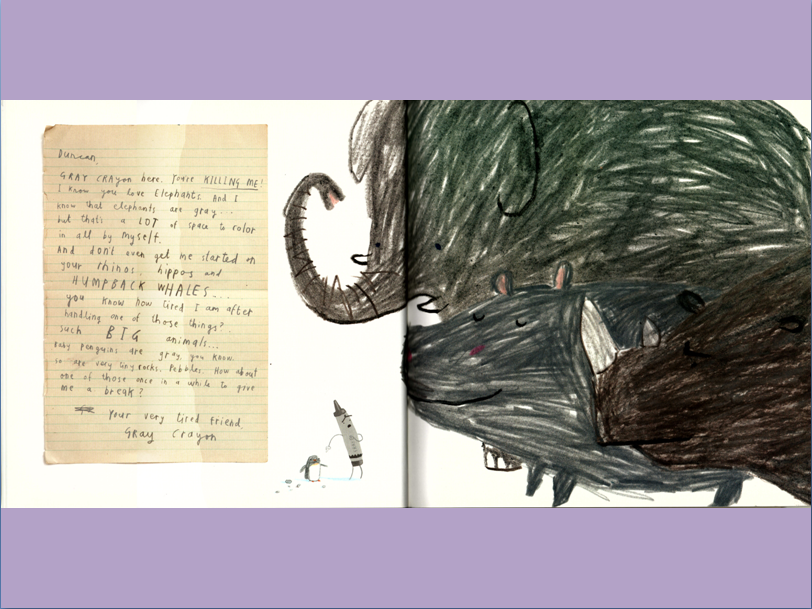 Duncan,
GRAY CRAYON here. You're KILLING ME!
I know you love Elephants. And I
know that elephants are gray...
but that's a LOT of space to color
in all by myself.
And don't even get me started on
your rhinos, hippos and
HUMPBACK WHALES...
you know how tired I am after
handling one of those things?
such BIG animals...
Baby penguins are gray, you know.
so are very tiny rocks. Pebbles. How about
one of those once in a while to give
me a break?
Your very tired friend,
Gray Crayon